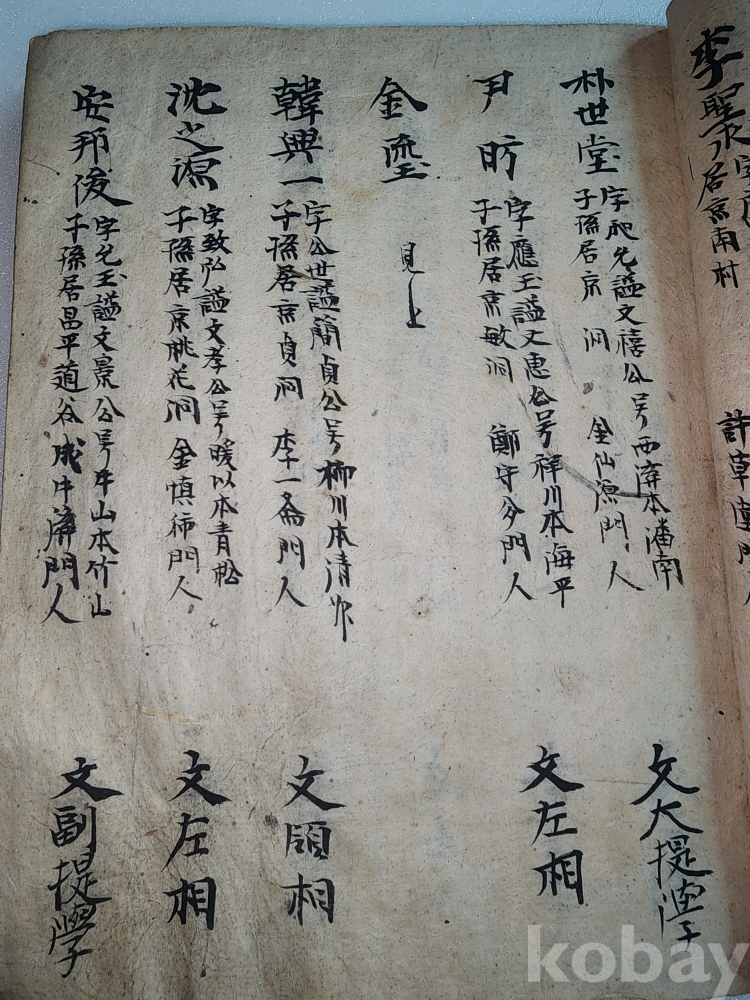 李聖
居京南村
朴世堂
文禧公号西
本潘南
子孫居京 洞 金仙源門人
文大提學
尹昉
字應玉諡文惠公号稚川本海平
子孫居京敏洞 鄭守夢門人
文左相
金瑬
見上
韓興一
字公世諡簡貞公号柳川本清州
子孫居京貞洞 李一斎門人
文領相
沈之源
字致弘諡文孝公号暖以本青松
子孫居京桃花洞 金慎 門人
文左相
安邦俊
字允玉諡文景公号牛山本竹山
子孫居昌平道谷成牛 門人
文副提學
kobay